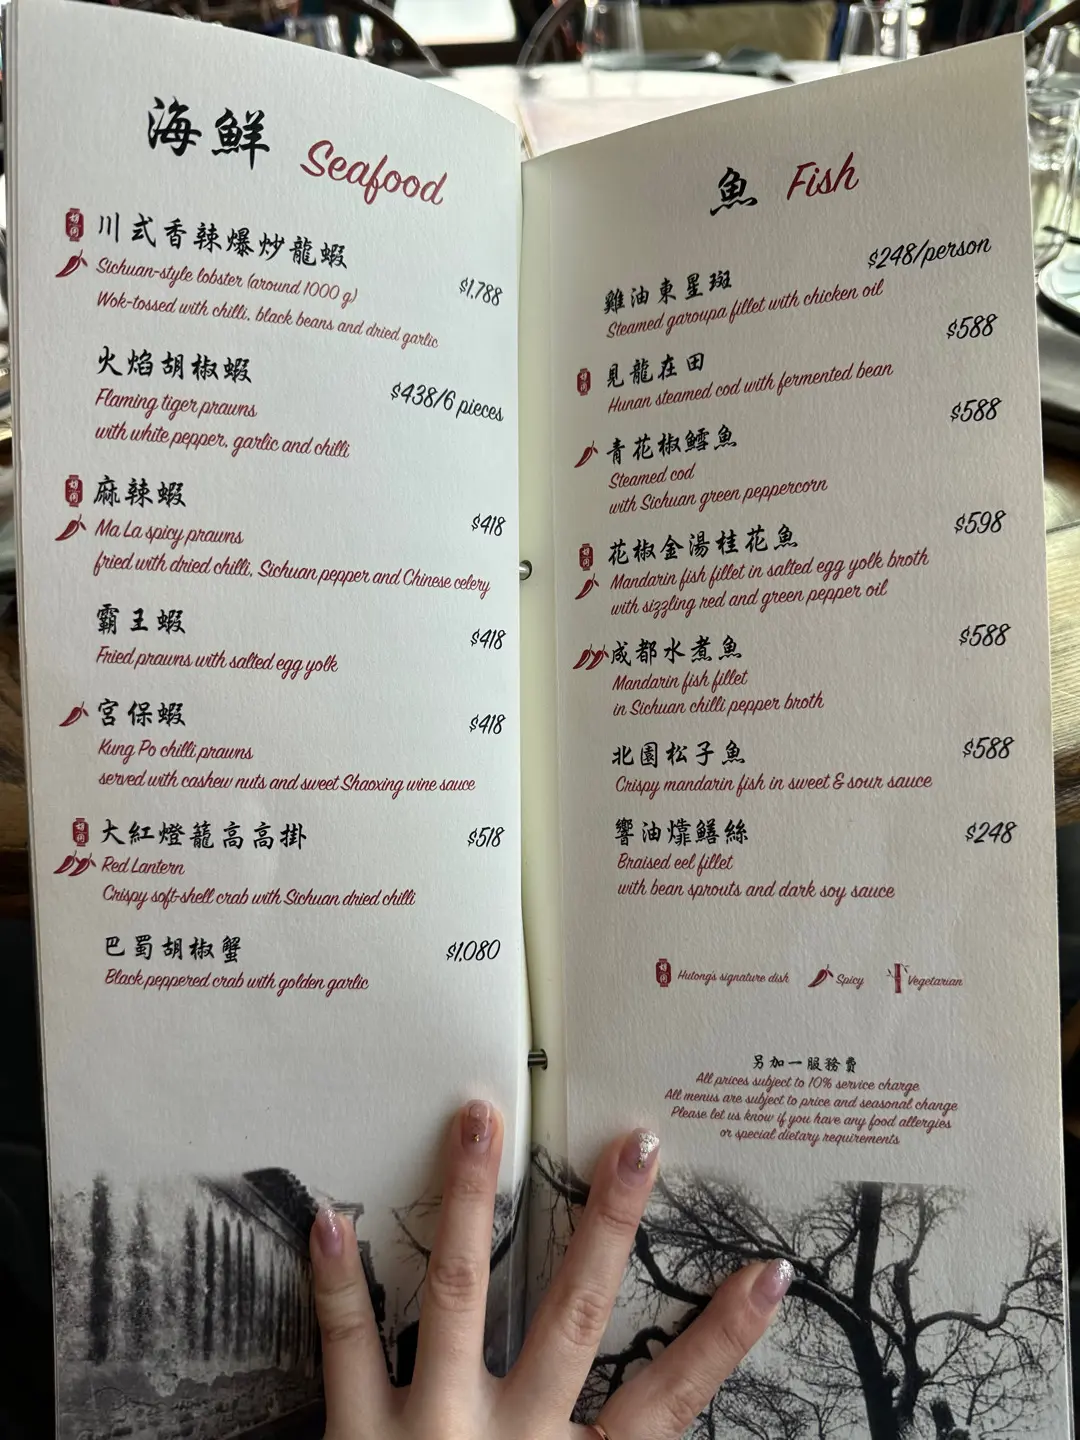 海鮮 Seafood
川式香辣爆炒龍蝦
Sichuan-style lobster (around 1000 g) $1,788
Wok-tossed with chilli, black beans and dried garlic
火焰胡椒蝦
Flaming tiger prawns $438/6 pieces
with white pepper, garlic and chilli
麻辣蝦
Ma La spicy prawns $418
fried with dried chilli, Sichuan pepper and Chinese celery
霸王蝦
Fried prawns with salted egg yolk $418
宮保蝦 $418
Kung Po chilli prawns
served with cashew nuts and sweet Shaoxing wine sauce
大紅燈籠高高掛 $518
Red Lantern
Crispy soft-shell crab with Sichuan dried chilli
巴蜀胡椒蟹 $1,080
Black peppered crab with golden garlic
魚 Fish
雞油東星斑 $248/person
Steamed garoupa fillet with chicken oil
見龍在田 $588
Hunan steamed cod with fermented bean
青花椒鱈魚 $588
Steamed cod
with Sichuan green peppercorn
花椒金湯桂花魚 $598
Mandarin fish fillet in salted egg yolk broth
with sizzling red and green pepper oil
成都水煮魚 $588
Mandarin fish fillet
in Sichuan chilli pepper broth
北園松子魚 $588
Crispy mandarin fish in sweet & sour sauce
響油㸆鱔絲 $248
Braised eel fillet
with bean sprouts and dark soy sauce
Hutong's signature dish Spicy Vegetarian
另加一服務費
All prices subject to 10% service charge
All menus are subject to price and seasonal change
Please let us know if you have any food allergies
or special dietary requirements